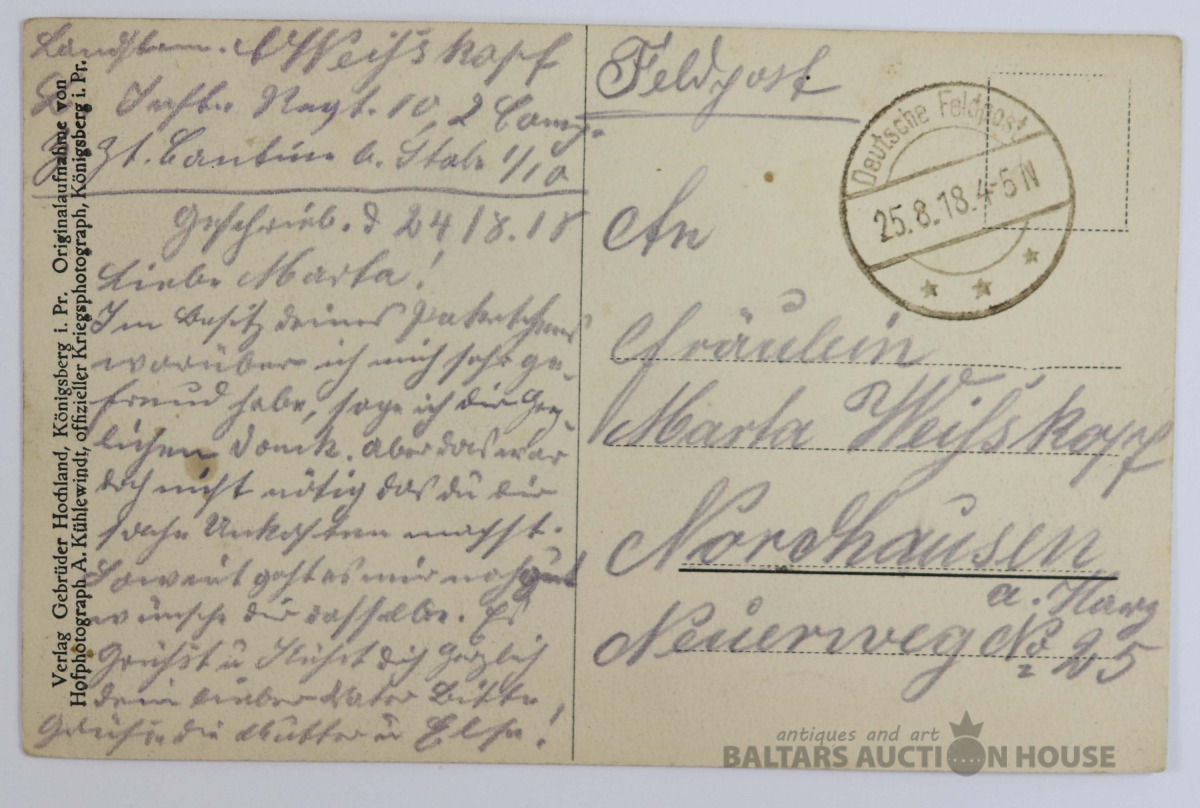 Landstum. Weißkopf
L. Inftr. Regt. 10, 2 Comp.
Zt. Cantine b. Stabe 1/10
Geschrieb. d 24/8.18
Liebe Marta!
Im Besitz deines Paketchens
worüber ich mich sehr ge-
freud habe, sage ich dir herz-
lichen Danck. Aber das war
doch nicht nötig das du dir
solche Unkosten machst.
Soweit geht es mir noch gut
wünsche dir dasselbe. Es
Grüßt u Küßt dich Herzlich
dein lieber Vater Bitte
Grüße die Mutter u Else!
Verlag Gebrüder Hochland, Königsberg i. Pr. Originalaufnahme von
Hofphotograph A. Kühlewindt, offizieller Kriegsphotograph, Königsberg i. Pr.
Feldpost
Deutsche Feldpost
25.8.18.4-5 N
An
Fräulein
Marta Weißkopf
Nordhausen
a. Harz
Neuerweg No 25
antiques and art
BALTARS AUCTION HOUSE